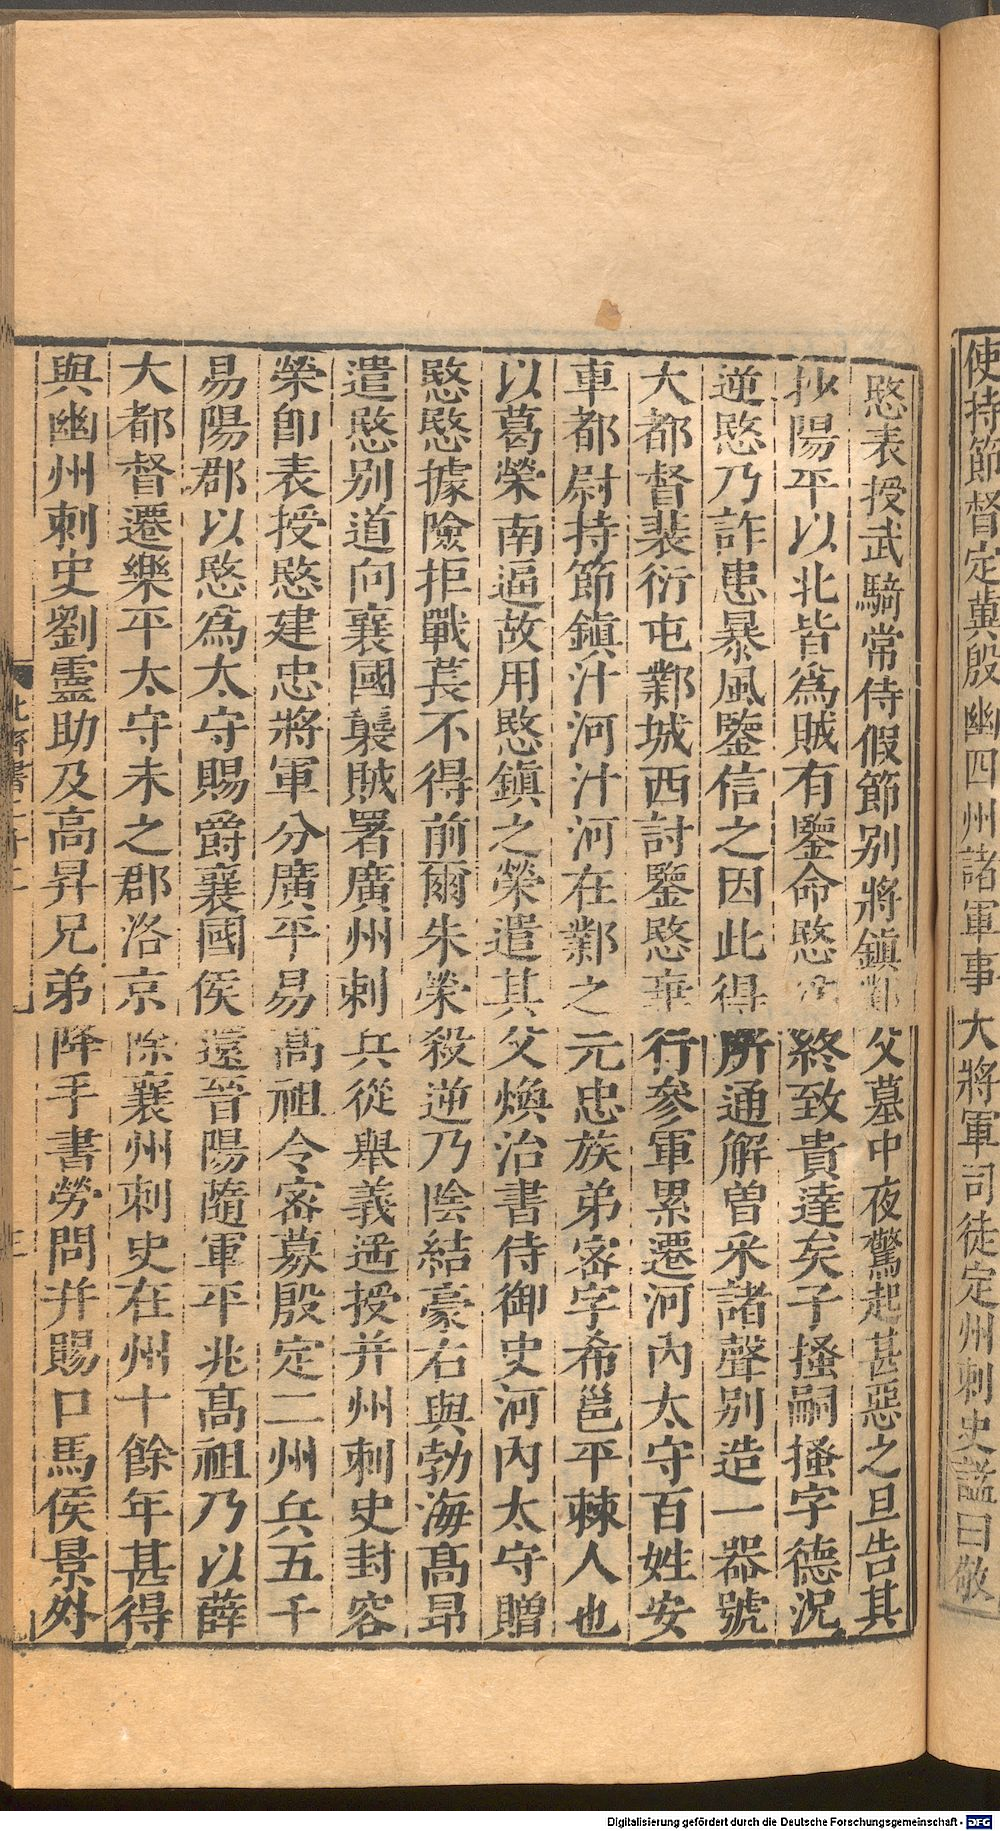 使持節督定冀殷幽四州諸軍事大將軍司徒定州刺史諡曰敬
愍表授武騎常侍假節别將鎮鄴父墓中夜驚起甚惡之旦告其
抄陽平以北皆爲賊有鑒命愍終致貴達矣子搔嗣搔字德況
逆愍乃詐患暴風鑒信之因此得所通解曽采諸聲别造一器號
大都督裴衍屯鄴城西討鑒愍棄行參軍累遷河內太守百姓安
車都尉持節鎮汁河汁河在鄴之元忠族弟宻字希邕平棘人也
以葛榮南逼故用愍鎮之榮遣其父煥治書侍御史河內太守贈
愍愍據險拒戰萇不得前爾朱榮殺逆乃陰結豪右與勃海髙昂
遣愍别道向襄國襲賊署廣州刺兵從舉義遥授并州刺史封容
榮即表授愍建忠將軍分廣平易髙祖令宻募殷定二州兵五千
易陽郡以愍爲太守賜爵襄國侯還晉陽隨軍平兆髙祖乃以薛
大都督遷樂平太守未之郡洛京除襄州刺史在州十餘年甚得
與幽州刺史劉靈助及高昇兄弟降手書勞問并賜口馬侯景外
北齊書二十二
Digitalisierung gefördert durch die Deutsche Forschungsgemeinschaft - DFG